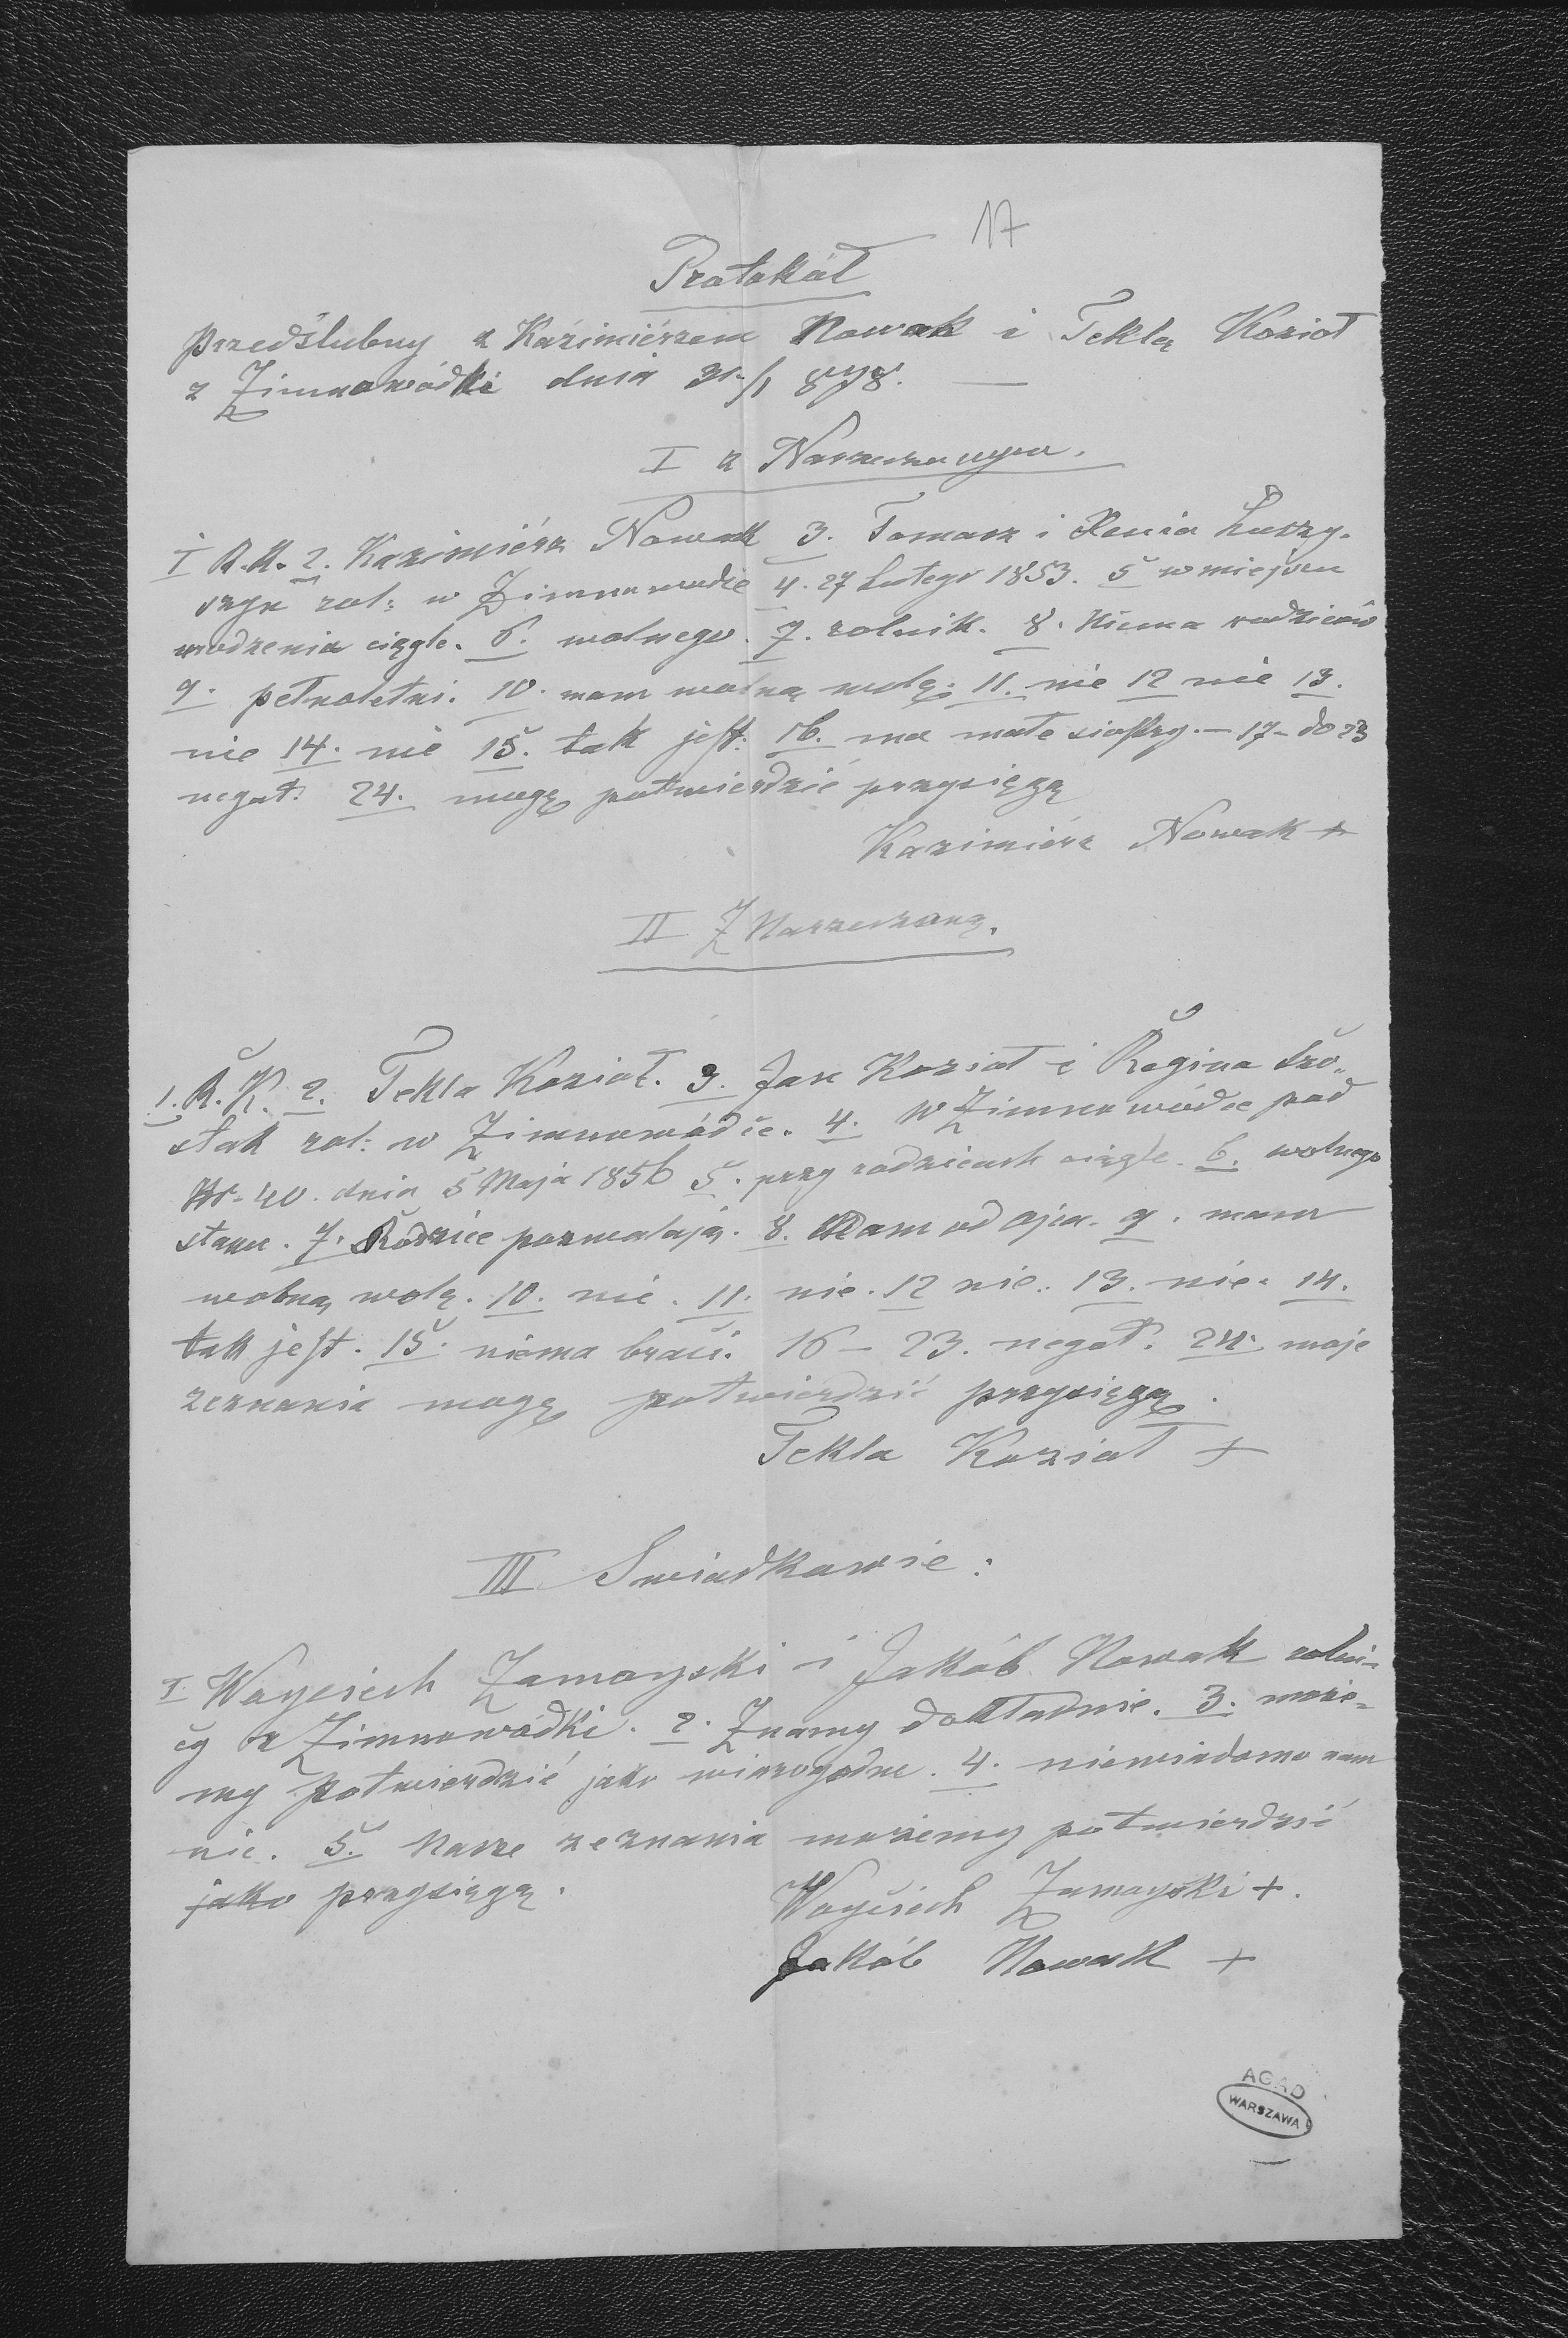 17
Protokół
przedślubny z Kazimiérzem Nowak i Teklą Kozioł
z Zimnowódki dnia 31/1 878. —
I z Narzeczonym.
I R.K. 2. Kazimiérz Nowak 3. Tomasz i Xenia
rol: w Zimnowodie 4. 27 Lutego 1853. 5 w miejscu
urodzenia ciągle. 6. wolnego. 7. rolnik. 8. Niema rodziców
9. pełnoletni. 10. mam wolną wolę. 11. nie 12 nie 13.
nie 14. nie 15. tak jest. 16. ma małe siostry. — 17 - do 23
negat. 24. mogę potwierdzić przysięgą
Kazimiérz Nowak +
II Z Narzeczoną.
1. R.K. 2. Tekla Kozioł. 3. Jan Kozioł i Regina Szo„
stak rol: w Zimnowódce. 4. W Zimnowódce pod
Nr. 40. dnia 5 Maja 1856 5. przy rodzicach ciągle. 6. wolnego
stanu. 7. Rodzice pozwalają. 8. Mam od ojca. 9. mam
wolną wolę. 10. nie. 11. nie. 12 nie. 13. nie. 14.
tak jest. 15. niéma braci. 16 — 23. negat. 24. moje
zeznania mogę potwierdzić przysięgą.
Tekla Kozioł +
III Swiadkowie:
I. Woyciech Zamoyski i Jakób Nowak rolni=
cy z Zimnowódki. 2. Znamy dokładnie. 3. może=
my potwierdzić jako wiarogodne. 4. niewiadomo nam
nic. 5. Nasze zeznania możemy potwierdzić
jako przysięgą.
Woyciech Zamoyski +.
Jakób Nowak +
AGAD
WARSZAWA